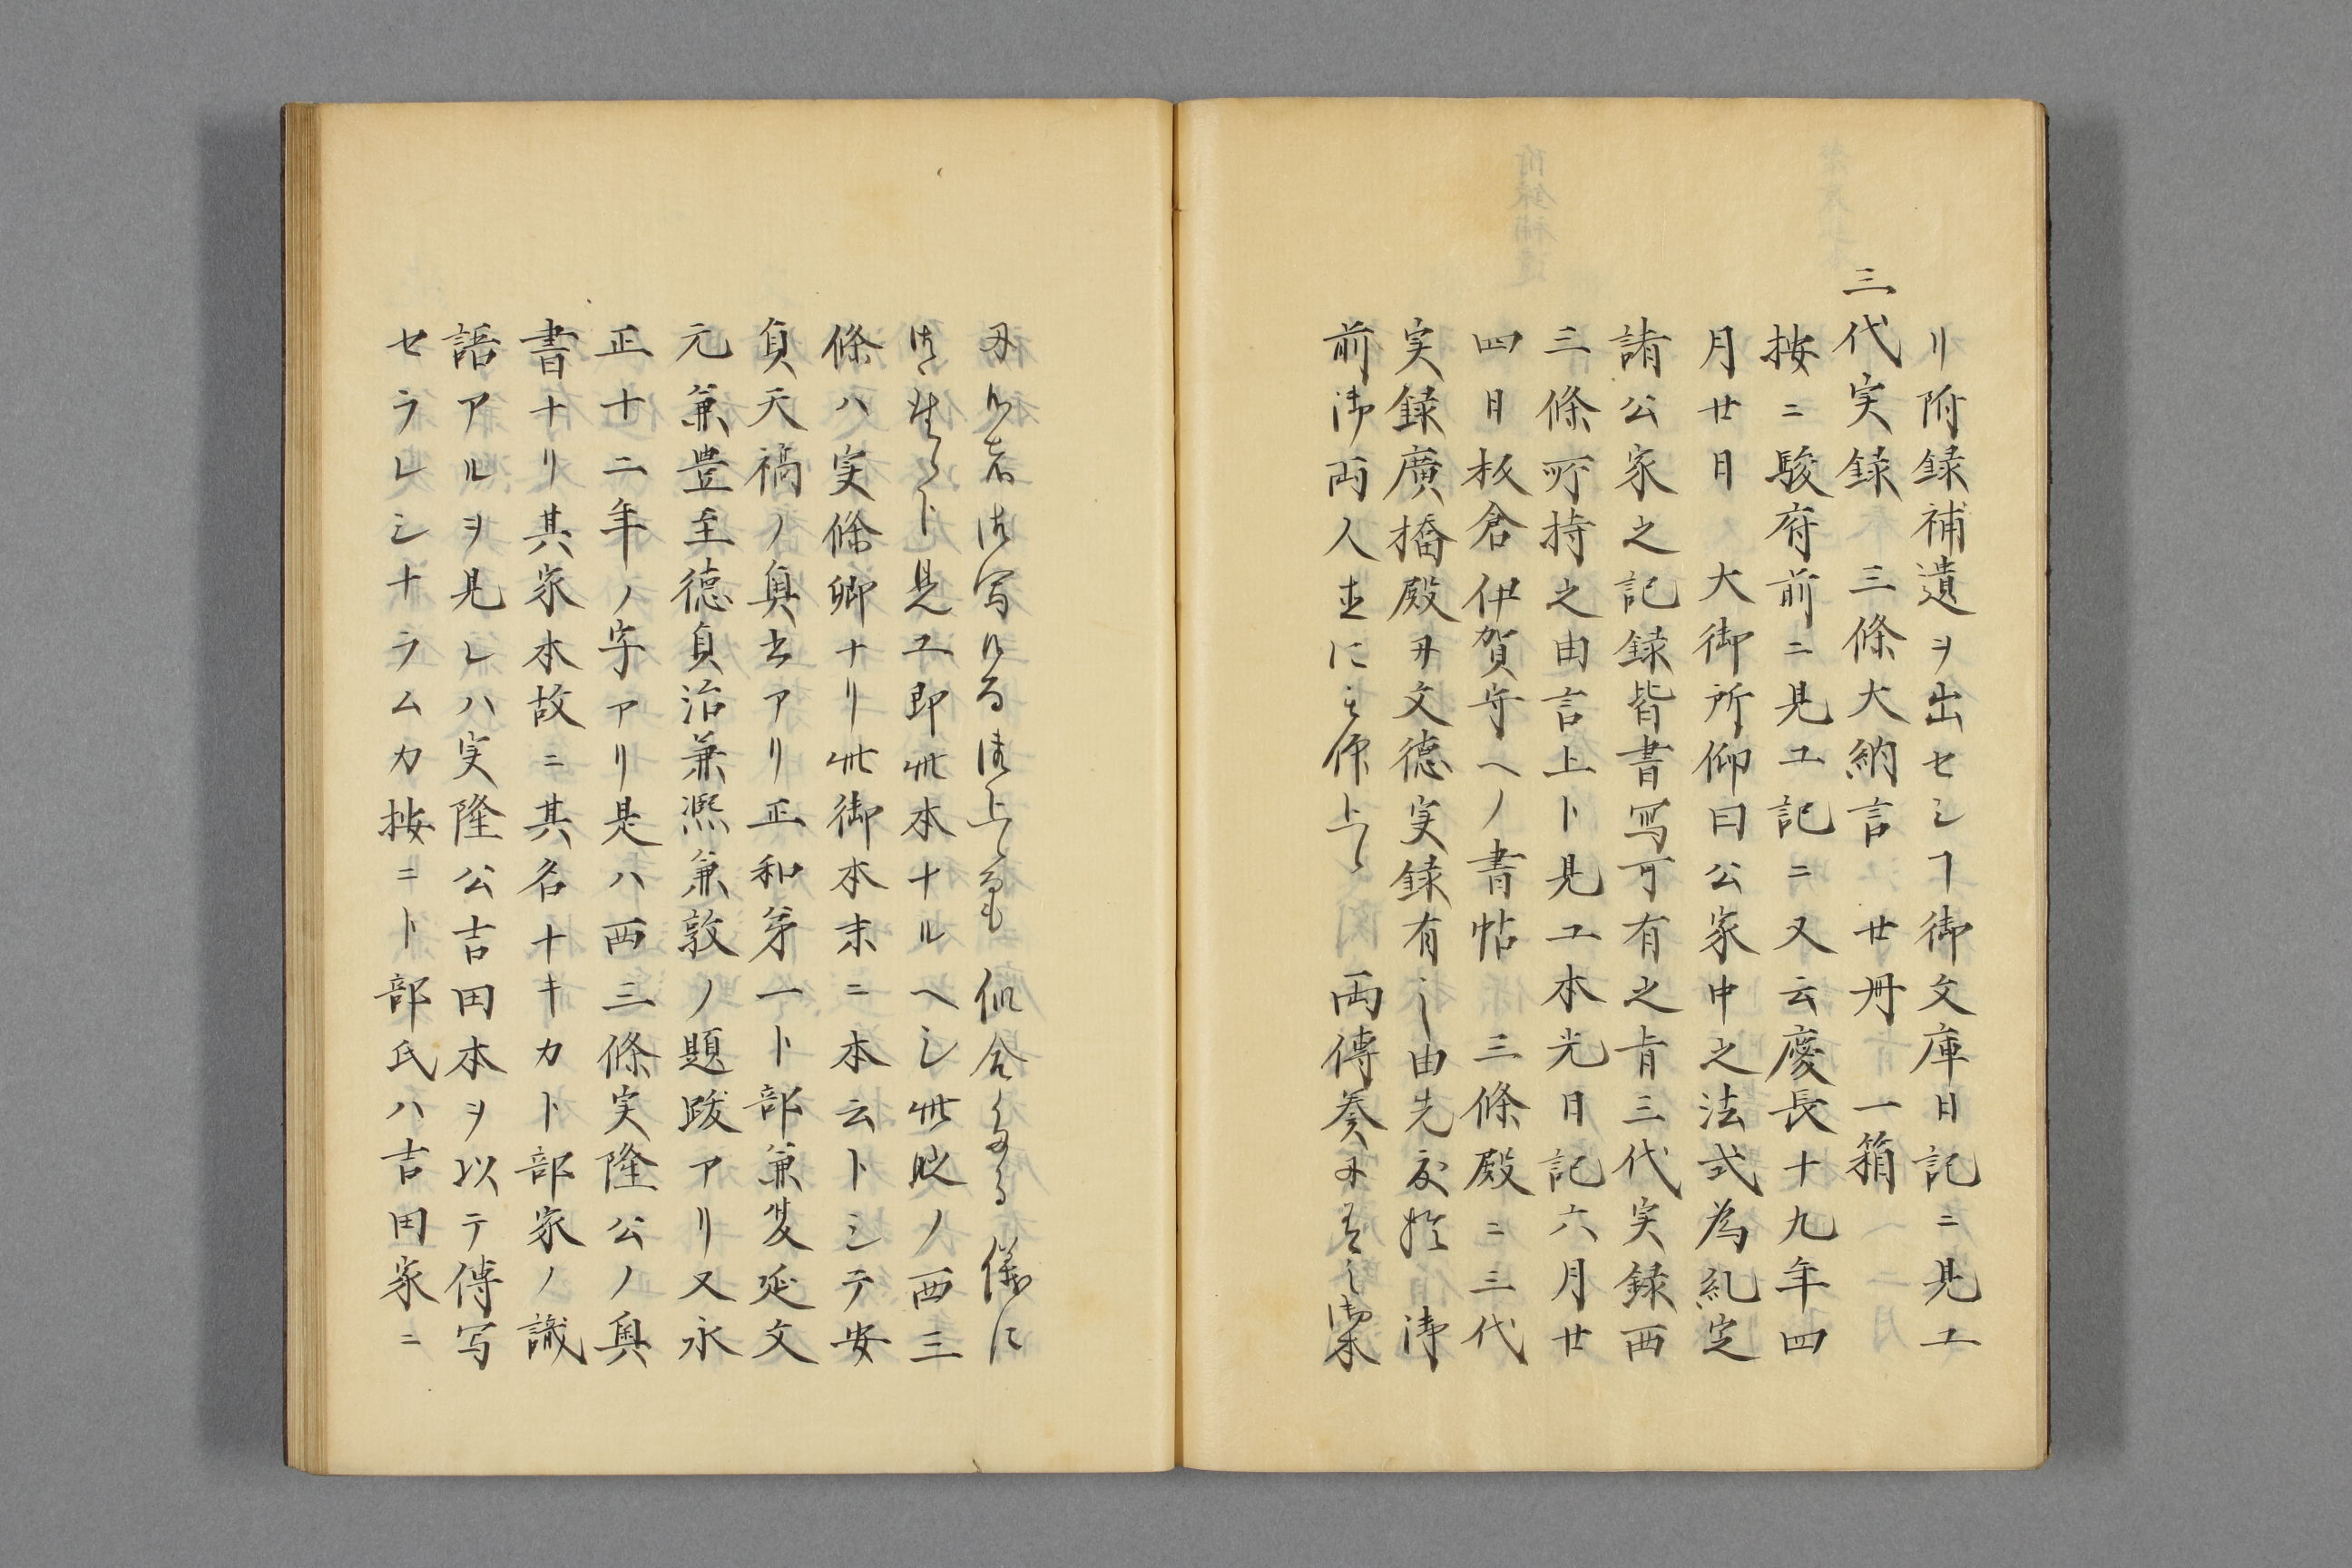 リ附録補遺ヲ出セシヿ御文庫日記ニ見エ
三代実録 三條大納言 廿冊 一箱
按ニ駿府前ニ見ユ記ニ又云慶長十九年四
月廿日 大御所仰曰公家中之法式為糺定
諸公家之記録皆書写可有之旨三代実録西
三條所持之由言上ト見ユ本光日記六月廿
四日板倉伊賀守ヘノ書帖 三條殿ニ三代
実録廣橋殿ヨ文徳実録有之由先度於 御
前御両人並に被仰上候 両傳奏
写 上 似合 儀に
ト見ユ即此本ナルヘシ此時ノ西三
條ハ実條卿ナリ此御本末ニ本云トシテ安
貞天福ノ奥書アリ正和第一卜部兼夏延文
元兼豊至徳貞治兼熈兼敦ノ題跋アリ又永
正十二年ノ字アリ是ハ西三條実隆公ノ奥
書ナリ其家本故ニ其名ナキカ卜部家ノ識
語アルヲ見レハ実隆公吉田本ヲ以テ傳写
セラレシナラムカ按ニ卜部氏ハ吉田家ニ